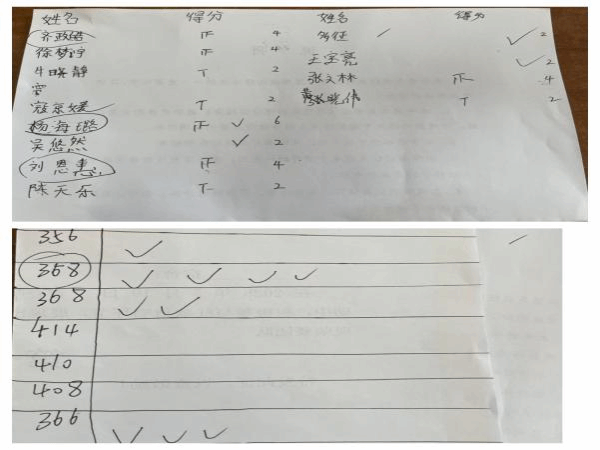 姓名 得分 姓名 得分
齐政皓 正 4 ✓ 2
徐梦宇 正 4 王宝亮 ✓ 2
牛晓静 T 2 张文林 正 4
寇京媛 T 2 T 2
杨海璐 正 ✓ 6
吴悠然 ✓ 2
刘恩惠 正 4
陈天乐 T 2
356 ✓
368 ✓ ✓ ✓ ✓
368 ✓ ✓
414
410
408
366 ✓ ✓ ✓